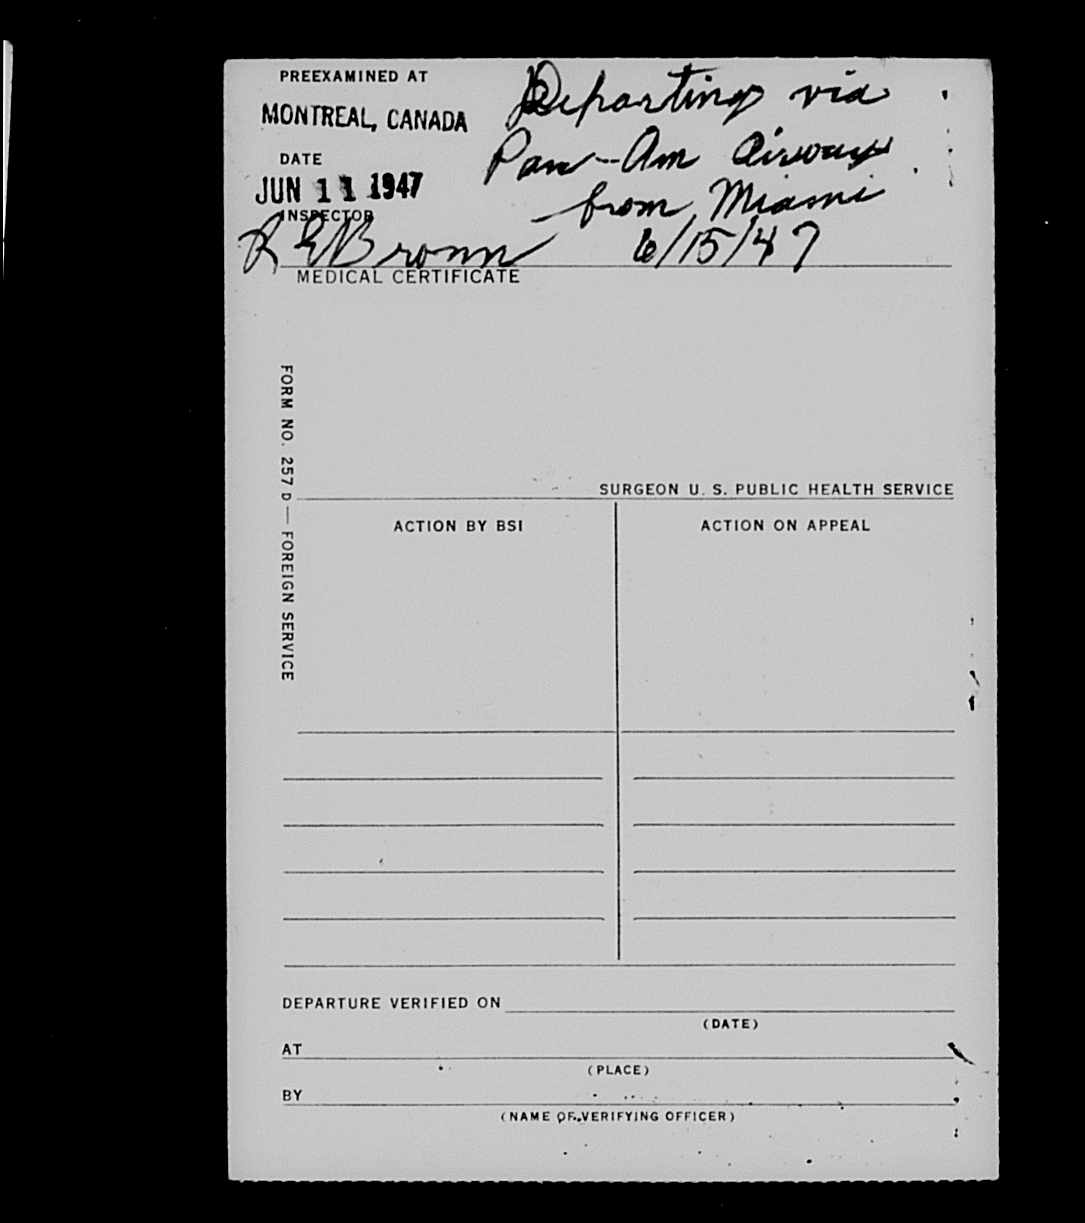 PREEXAMINED AT
MONTREAL, CANADA
DATE
JUN 11 1947
INSPECTOR
R E Brown
Departing via
Pan-Am Airways
from Miami
6/15/47
MEDICAL CERTIFICATE
FORM NO. 257 D — FOREIGN SERVICE
SURGEON U. S. PUBLIC HEALTH SERVICE
ACTION BY BSI
ACTION ON APPEAL
DEPARTURE VERIFIED ON
(DATE)
AT
(PLACE)
BY
(NAME OF VERIFYING OFFICER)